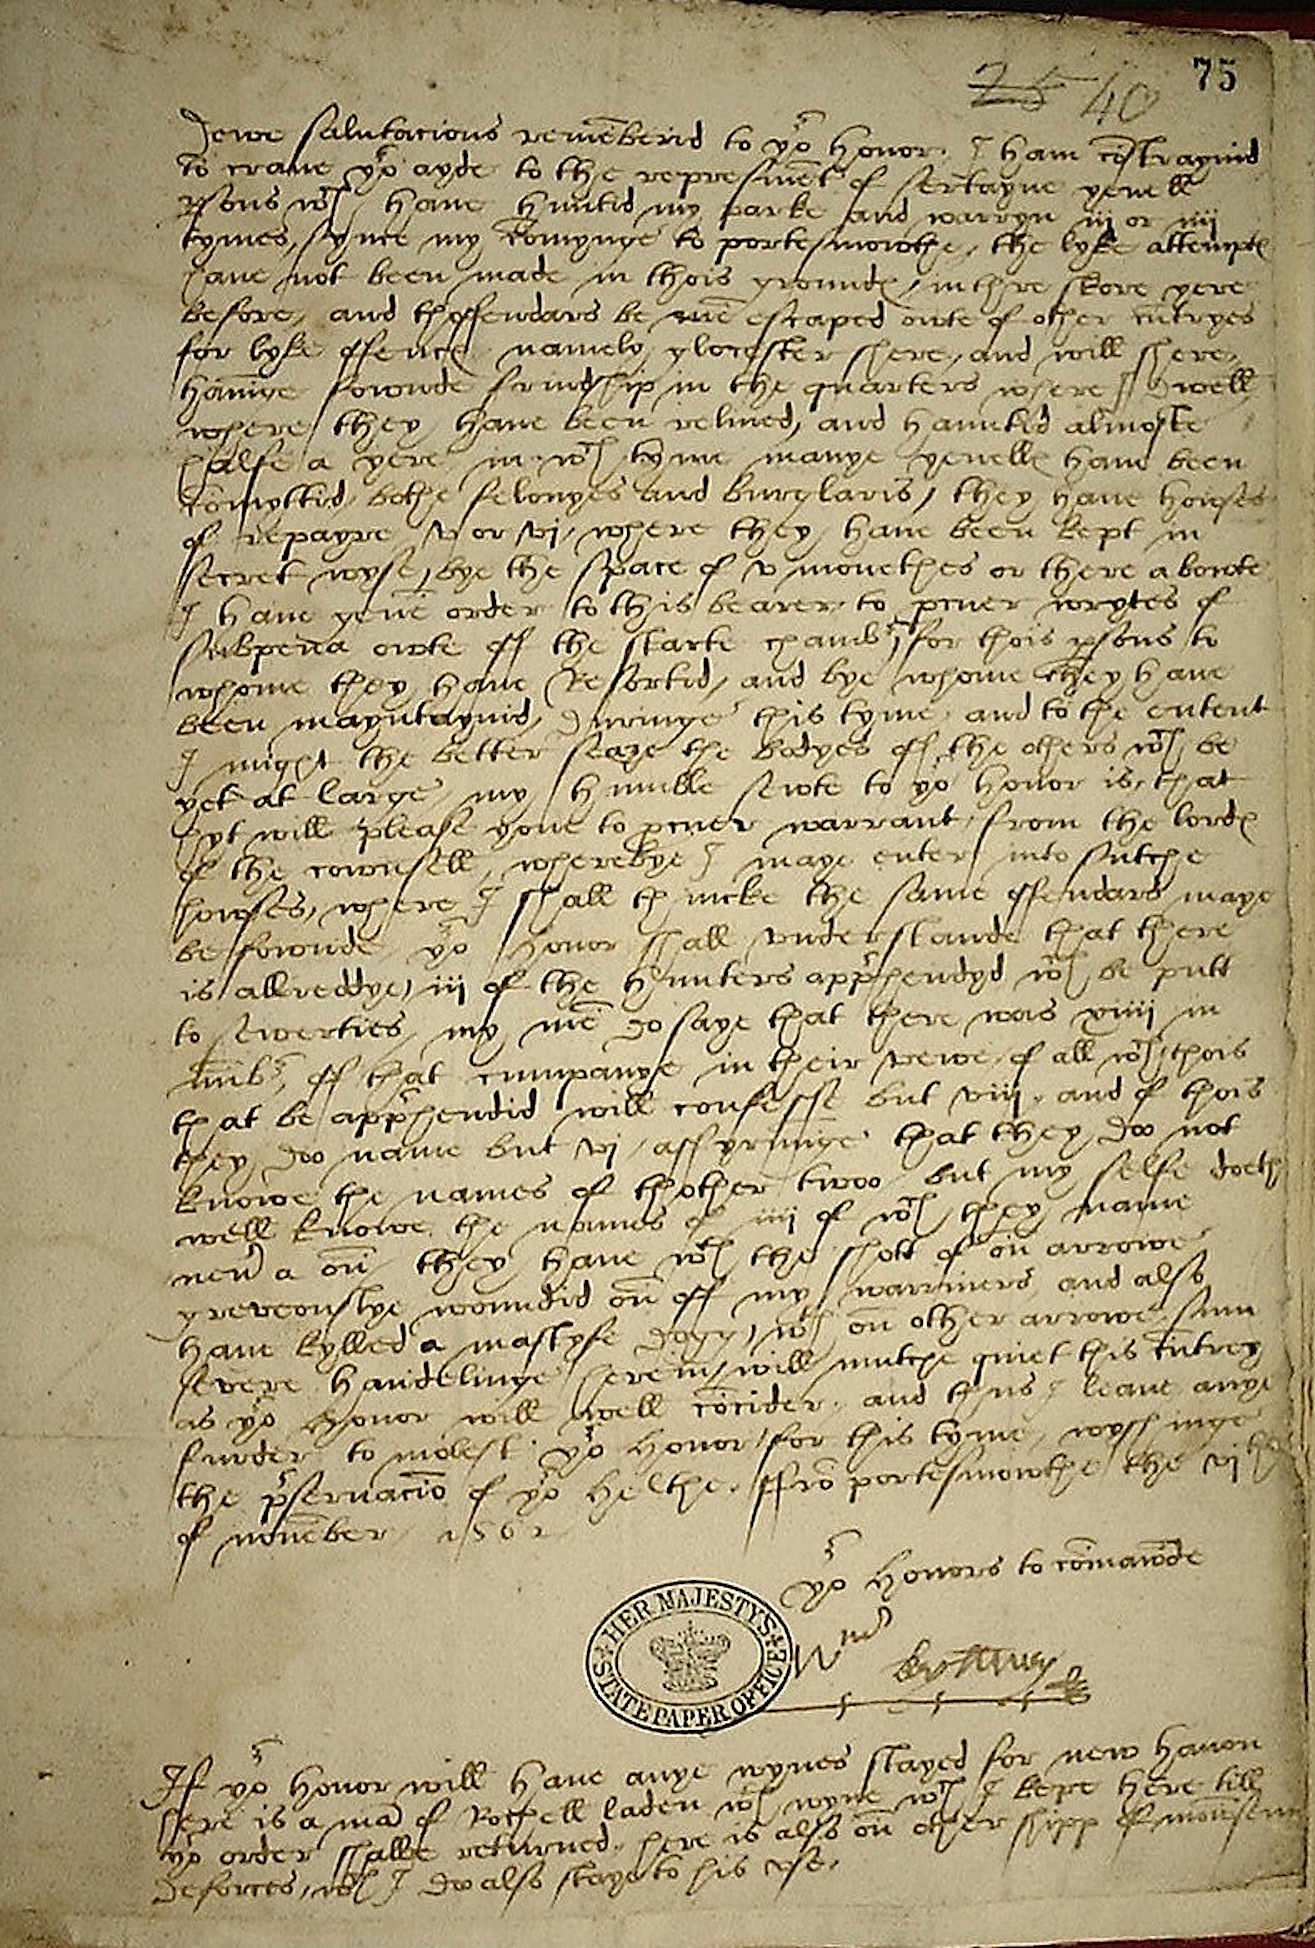 75
25 40
Dewe salutacions remēberid to yor honor. I ham cōstraynid
to crave yor ayde to the represinēt of sertayne yevell
psons wch have huntid my parke and warryn iii or iiii
tymes, synce my comynge to portesmowthe, the lyke attempts
have not been made in thois grounds, in thre skore yere
before, and thoffendars be mē escaped owte of other cūtryes
for lyke offence, namely glocester shere, and will shere,
havinge fowonde frindship in the quarters where I dwell
where they have been relived, and hauntid almoste
halfe a yere in wch tyme manye yevells have been
comyttid, bothe felonyes and burglaris, they have howses
of repayre v or vi, where they have been kept in
secret wyse, bye the space of v monethes or there abowte
I have geven order to this bearer to pcuer wrytes of
subpena owte off the starte chamber, for thois psons to
whome they have Resortid, and bye whome they have
been mayntaynid, duringe this tyme and to the entent
I might the better seaze the bodyes off the others wch be
yet at large, my humble sewte to yor honor is, that
hyt will please youe to pcuer warrant, from the lords
of the cownsell, wherebye I maye enter into sutche
howses, where I shall thincke the same offendars maye
be fowonde, yor honor shall understande that there
is allreddye, iii of the hunters apprhendyd wch be putt
to sewerties, my mē do saye that there was xiiii in
nūber, off that cumpanye in their vewe, of all wch thois
that be apprhendid will confesse but viii, and of thois
they doo name but vi, affyrminge that they doo not
knowe the names of thother twoo but my selfe doeth
well knowe the names of iiii of wch they name
a on they have wth the shott of on arrowe
greveouslye woundid on off my warriners and also
have kylled a mastyfe dogg, wth on other arrowe, sum
severe handelinge herein, will mutche quiet this cūtrey
as yor honor will well cōcider. and thus I leave anye
furder to molest yor honor for this tyme, wysshinge
the prservaciō of yor helthe. ffrō portesmowthe the vi th
of november 1562
yor honors to cōmawnde
HER MAJESTYS STATE PAPER OFFICE
Wm
If yor honor will have anye wynes stayed for new haven
here is a mā of Rochell laden wth wyne wch I kepe here till
yor order shalbe returned. here is also on other shipp of
deforces, wch I doo also staye to his use.